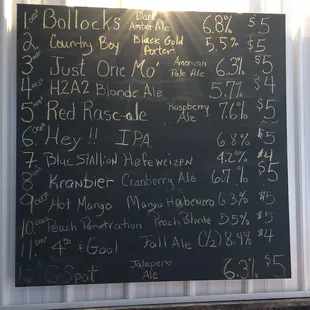 1. Bollocks Dark Amber Ale 6.8% $5
2. Country Boy Black Gold Porter 5.5% $5
3. Just One Mo' American Pale Ale 6.3% $5
4. H2A2 Blonde Ale 5.7% $4
5. Red Rasc-ale Raspberry Ale 7.6% $5
6. Hey!! IPA 6.8% $5
7. Blue Stallion Hefeweizen 4.2% $4
8. Kranbier Cranberry Ale 6.7% $5
9. Hot Mango Mango Habenero 6.3% $5
10. Peach Penetration Peach Blonde 5.5% $5
11. 4th & Goal Fall Ale (1/2) 8.4% $4
12. G-Spot Jalapeno Ale 6.3% $5